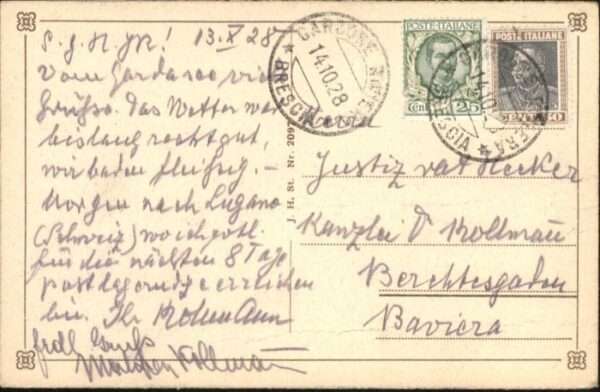 S. g. H. JR! 13.X.28
Vom Gardasee viele
Grüsse. Das Wetter war
bislang recht gut,
wir baden fleissig. —
Morgen nach Lugano
(Schweiz) wo ich
für die nächsten 8 Tage
postlagernd
bin. Ihr Kollmann
frdl Gruss
Kollmann
J. H. St. Nr. 2097
GARDONE RIVIERA
14.10.28
BRESCIA
POSTE ITALIANE
Cent. 25
POSTE ITALIANE
CENT. 50
GARDONE RIVIERA
14.10.
BRESCIA
Herrn
Justizrat Hecker
Kanzlei D Kollmann
Berchtesgaden
Baviera